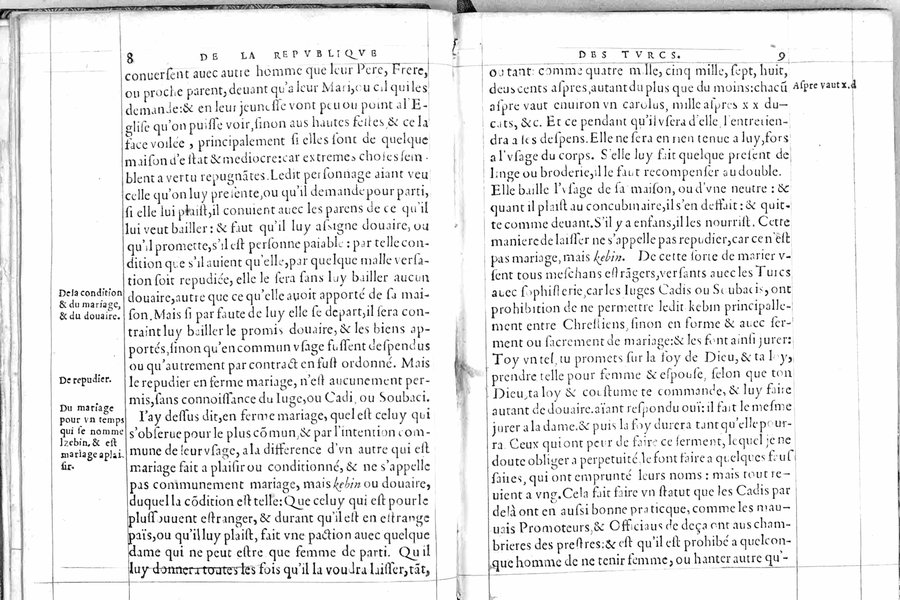 8 DE LA REPVBLIQVE
conuersent auec autre homme que leur Pere, Frere,
ou proche parent, deuant qu'a leur Mari, ou cil qui les
demande: & en leur jeunesse vont peu ou point al'E-
glise qu'on puisse voir, sinon aus hautes festes, & ce la
face voilee, principalement si elles sont de quelque
maison d'estat & mediocre: car extremes choses sem-
blent a vertu repugnãtes. Ledit personnage aiant veu
celle qu'on luy presente, ou qu'il demande pour parti,
si elle lui plaist, il conuient auec les parens de ce qu'il
lui veut bailler: & faut qu'il luy assigne douaire, ou
qu'il promette, s'il est personne paiable: par telle con-
dition que s'il auient qu'elle, par quelque malle versa-
tion soit repudiée, elle le sera sans luy bailler aucun
De la condition
& du mariage,
& du douaire.
douaire, autre que ce qu'elle auoit apporté de sa mai-
son. Mais si par faute de luy elle se depart, il sera con-
traint luy bailler le promis douaire, & les biens ap-
portés, sinon qu'en commun vsage fussent despendus
ou qu'autrement par contract en fust ordonné. Mais
De repudier.
le repudier en ferme mariage, n'est aucunement per-
mis, sans connoissance du Iuge, ou Cadi, ou Soubaci.
Du mariage
pour vn temps
qui se nomme
kebin, & est
mariage a plai.
sir.
I'ay dessus dit, en ferme mariage, quel est celuy qui
s'obserue pour le plus cõmun, & par l'intention com-
mune de leur vsage, a la difference d'vn autre qui est
mariage fait a plaisir ou conditionné, & ne s'appelle
pas communement mariage, mais kebin ou douaire,
duquel la cõdition est telle: Que celuy qui est pour le
plus souuent estranger, & durant qu'il est en estrange
païs, ou qu'il luy plaist, fait vne paction auec quelque
dame qui ne peut estre que femme de parti. Qu il
luy donnera toutes les fois qu'il la voudra laisser, tãt,
DES TVRCS. 9
ou tant: comme quatre mille, cinq mille, sept, huit,
deus cents aspres, autant du plus que du moins: chacũ
Aspre vaut x. d
aspre vaut enuiron vn carolus, mille aspres x x du-
cats, &c. Et ce pendant qu'il vsera d'elle, l'entretien-
dra a ses despens. Elle ne sera en rien tenue a luy, fors
a l'vsage du corps. S'elle luy fait quelque present de
linge ou broderie, il le faut recompenser au double.
Elle baille l'vsage de sa maison, ou d'vne neutre: &
quant il plaist au concubinaire, il s'en deffait: & quit-
te comme deuant. S'il y a enfans, il les nourrist. Cette
maniere de laisser ne s'appelle pas repudier, car ce n'ẽst
pas mariage, mais kebin. De cette sorte de marier v-
sent tous meschans estrãgers, versants auec les Turcs
auec sophisterie, car les Iuges Cadis ou Soubacis, ont
prohibition de ne permettre ledit kebin principalle-
ment entre Chrestiens, sinon en forme & auec ser-
ment ou sacrement de mariage: & les font ainsi jurer:
Toy vn tel, tu promets sur la foy de Dieu, & ta loy,
prendre telle pour femme & espouse, selon que ton
Dieu, ta loy & coustume te commande, & luy faire
autant de douaire. aïant respondu oui: il fait le mesme
jurer a la dame. & puis la foy durera tant qu'elle pour-
ra. Ceux qui ont peur de faire ce serment, lequel je ne
doute obliger a perpetuité, le font faire a quelques
faites, qui ont emprunté leurs noms: mais tout re-
uient a vng. Cela fait faire vn statut que les Cadis par
delà ont en aussi bonne practicque, comme les mau-
uais Promoteurs, & Officiaus de deça ont aus cham-
brieres des prestres: & est qu'il est prohibé a quelcon-
que homme de ne tenir femme, ou hanter autre qu'-